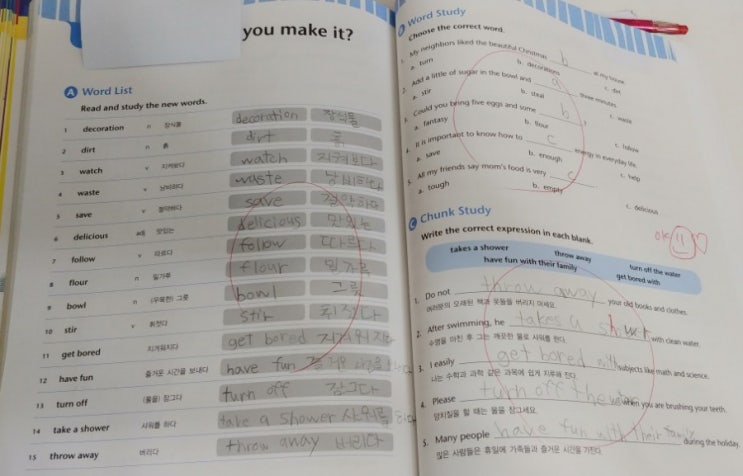 you make it?
A Word List
Read and study the new words.
1 decoration n 장식물 decoration 장식물
2 dirt n 흙 dirt 흙
3 watch v 지켜보다 watch 지켜보다
4 waste v 낭비하다 waste 낭비하다
5 save v 절약하다 save 절약하다
6 delicious adj 맛있는 delicious 맛있는
7 follow v 따르다 follow 따르다
8 flour n 밀가루 flour 밀가루
9 bowl n (우묵한) 그릇 bowl 그릇
10 stir v 휘젓다 stir 휘젓다
11 get bored 지겨워지다 get bored 지겨워지다
12 have fun 즐거운 시간을 보내다 have fun 즐거운
13 turn off (물을) 잠그다 turn off 잠그다
14 take a shower 샤워를 하다 take a shower 샤워를 하다
15 throw away 버리다 throw away 버리다
B Word Study
Choose the correct word.
1. My neighbors liked the beautiful Christmas b at my house.
a. turn b. decorations c. dirt
2. Add a little of sugar in the bowl and a three minutes.
a. stir b. steal c. waste
3. Could you bring five eggs and some b ?
a. fantasy b. flour c. follow
4. It is important to know how to c energy in everyday life.
a. save b. enough c. help
5. All my friends say mom's food is very c
a. tough b. empty c. delicious
C Chunk Study
Write the correct expression in each blank.
ok
takes a shower throw away turn off the water
have fun with their family get bored with
1. Do not throw away your old books and clothes.
여러분의 오래된 책과 옷들을 버리지 마세요.
2. After swimming, he takes a shower with clean water.
수영을 마친 후 그는 깨끗한 물로 샤워를 한다.
3. I easily get bored with subjects like math and science.
나는 수학과 과학 같은 과목에 쉽게 지루해 진다.
4. Please turn off the water when you are brushing your teeth.
양치질을 할 때는 물을 잠그세요.
5. Many people have fun with their family during the holiday.
많은 사람들은 휴일에 가족들과 즐거운 시간을 가진다.